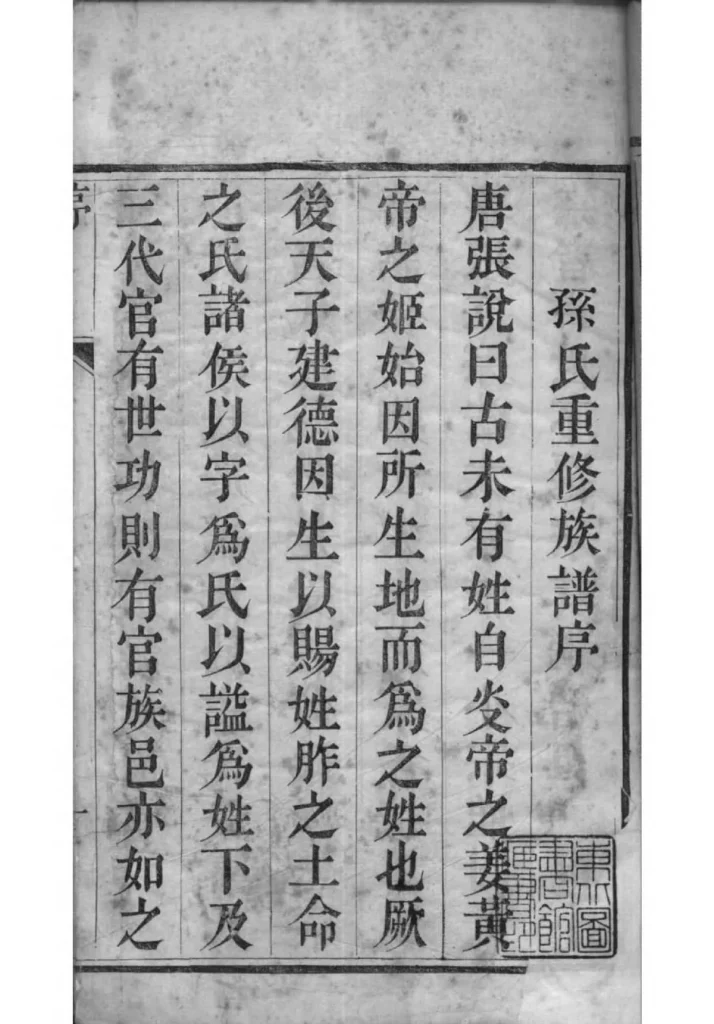 孫氏重修族譜序
唐張說曰古未有姓自炎帝之姜黃
帝之姬始因所生地而爲之姓也厥
後天子建德因生以賜姓胙之土命
之氏諸侯以字爲氏以謚爲姓下及
三代官有世功則有官族邑亦如之
序
一